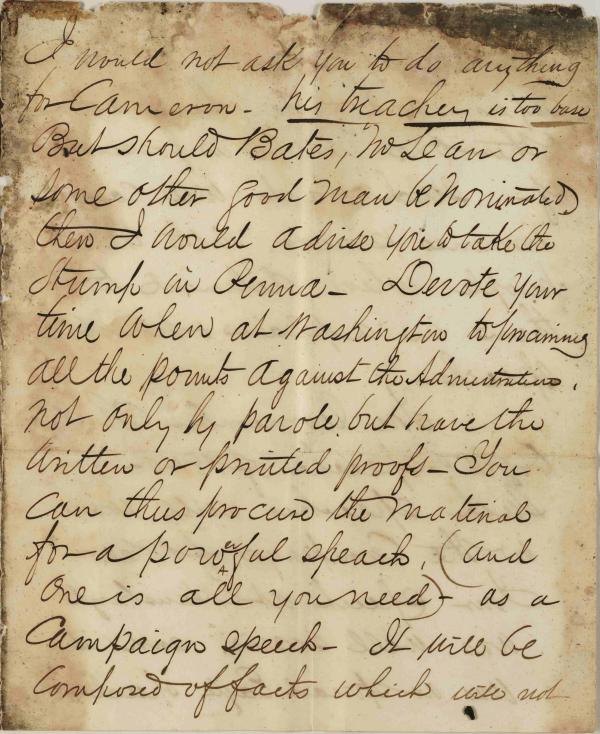 I would not ask you to do anything
for Cameron - his treachery is too base
But should Bates, McLean or
some other good man be nominated
then I would advise you to take the
Stump in Penna - Devote your
time when at Washington to procuring
all the points against the Administration,
not only by parole but have the
written or printed proofs - You
can thus procure the material
for a powerful speach, (and
one is all you need) - as a
Campaign speech - It will be
composed of facts which will not